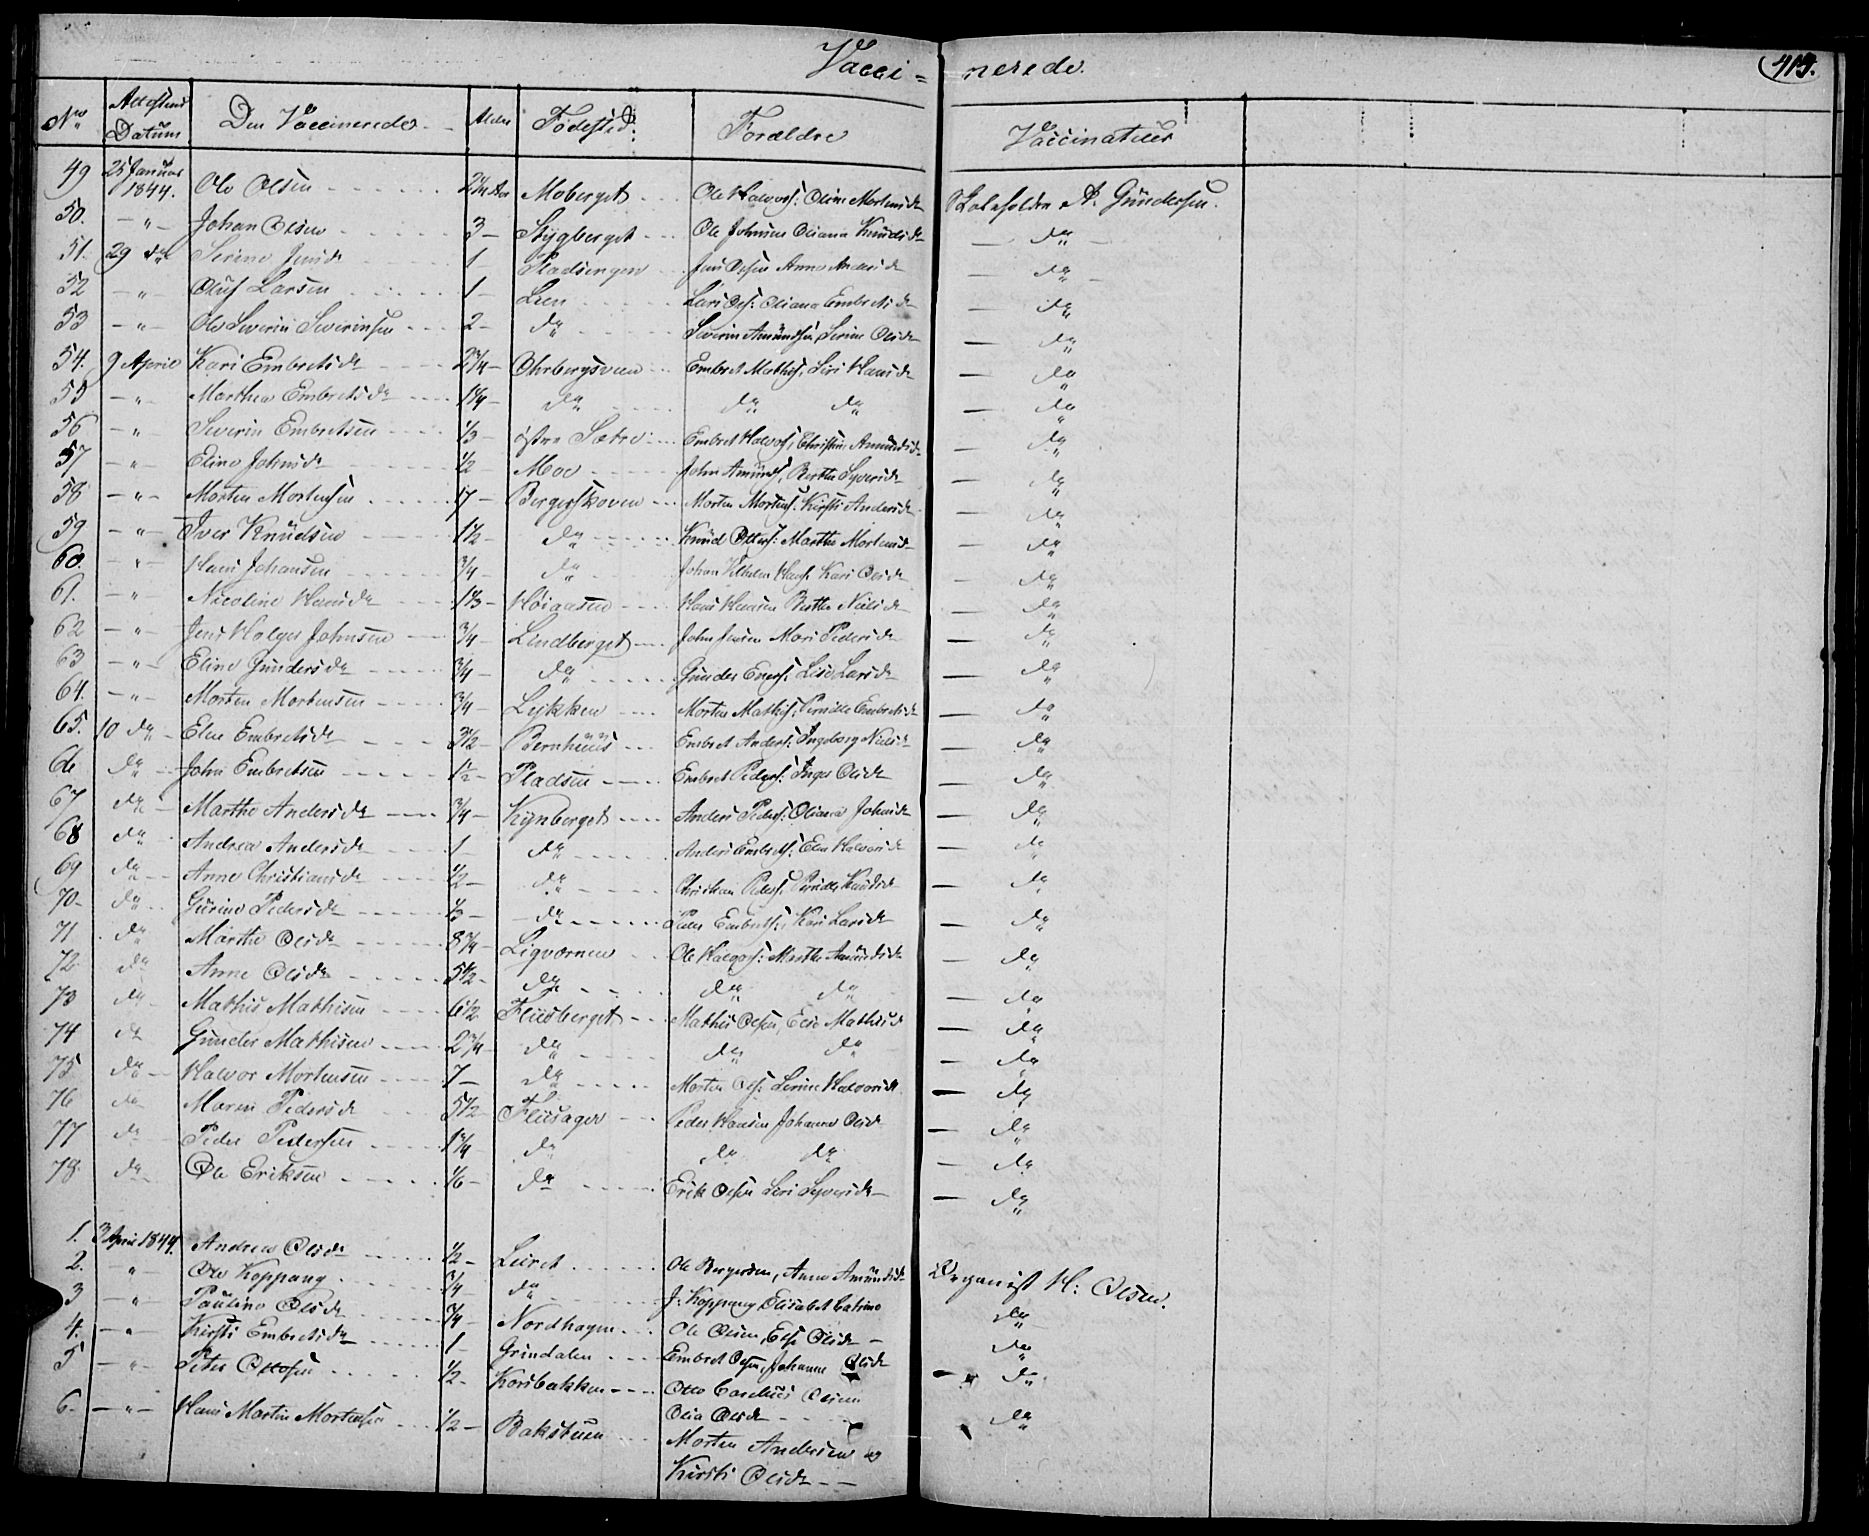 Vacci = nerede.
415.
No Attestens Datum Den Vaccinerede Alder Fødested: Forældre Vaccinateur
49 25 Januar 1844. Ole Olsen 2 1/4 Aar Moberget Ole Halvors: Oline Mortensdr Skoleholder A. Gundersen.
50. " Johan Olsen 3 Stygberget Ole Johnsen Oliana Knudsdr do
51. 29 do Serine Jensdr 1 Pladsengen Jens Olsen Anne Andersdr do
52 " Oluf Larsen 1 Lien Lars Ols: Oliana Embretsdr do
53 " Ole Severin Severinsen 2 do Severin Amundsen, Serine Olsdr do
54. 9 April Kari Embretsdr 2 3/4 Ohrbergsveen Embret Mathis: Siri Hansdr do
55 " Marthea Embretsdr 1 1/4 do do do do
56 " Severin Embretsen 1/3 østre Sætre Embret Halvors: Christine Amundsdr do
57 " Eline Johnsdr 1/2 Moe John Amunds: Berthe Syversdr do
58 " Morten Mortensen 17 Bergerskoven Morten Mortens: Kirsti Andersdr do
59 " Iver Knudsen 1 1/2 do Knud Otters: Marthe Mortensdr do
60. " Hans Johansen 3/4 do Johan Vilhelm Hans: Kari Olsdr do
61. " Nicoline Hansdr 1 1/3 Høiaasen Hans Hansen Berthe Nielsdr do
62 " Jens Holger Johnsen 3/4 Lindberget John Jensen Mari Pedersdr do
63 " Eline Gundersdr 3/4 do Gunder Eners: Lise Larsdr do
64. " Morten Mortensen 3/4 Løkken Morten Mathis: Pernille Embretsdr do
65. 10 do Elen Embretsdr 3 1/2 Bernhuus Embret Anders: Ingeborg Nielsdr do
66 do John Embretsen 1 1/2 Pladsen Embret Peders: Inger Olsdr do
67 do Marthe Andersdr 3/4 Kynberget Anders Peders: Oliana Johnsdr do
68 do Andrea Andersdr 1 do Anders Embrets: Elen Halvorsdr do
69 do Anne Christiansdr 1/2 do Christian Peders: Pernille Knudsdr do
70 do Gurine Pedersdr 1/3 do Peder Embrets: Kari Larsdr do
71 do Marthe Olsdr 8 3/4 Ligværnen Ole Halvors: Marthe Amundsdr do
72 do Anne Olsdr 5 1/2 do do do do
73 do Mathis Mathisen 6 1/2 Fliisberget Mathis Olsen, Elise Mathisd do
74 do Gunder Mathisen 2 3/4 do do do do
75 do Halvor Mortensen 7 do Morten Ols: Serine Halvorsdr do
76 do Maren Pedersdr 5 1/2 Fliisager Peder Hansen Johanne Olsdr do
77 do Peder Pedersen 1 3/4 do do do do
78. do Ole Eriksen 1/6 do Erik Olsen Siri Syversdr do
1. 3 April 1844. Andrea Olsdr 1/2 Leiret Ole Bergersen, Anne Amundsdr Organist H: Olsen.
2. " Ole Koppang 3/4 do J: Koppang Elisabet Catrine do
3 " Pauline Olsdr 3/4 Nordhagen Ole Olsen, Else Olsdr do
4. " Kirsti Embretsdr 1 Grindalen Embret Olsen, Johanne Olsdr do
5 " Peter Ottosen 1/2 Korsbakken Otto Carelius Olsen
Olia Olsdr do
6 " Hans Martin Mortensen 1/2 Bakstuen Morten Andersen og
Kirsti Olsdr